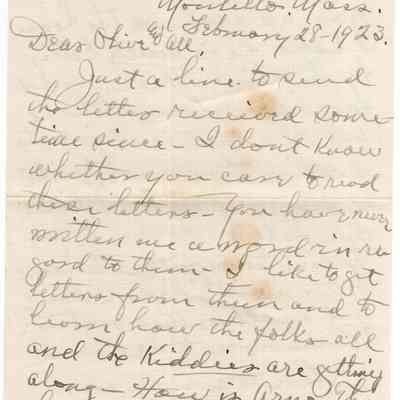 Montello. Mass.
February 28-1923.
Dear Olive and all,
Just a line to send
the letter received some
time since - I don't know
whether you care to read
these letters - You have never
written me a word in re
gard to them - I like to get
letters from them and to
learn how the folks all
and the Kiddies are getting
along - How is